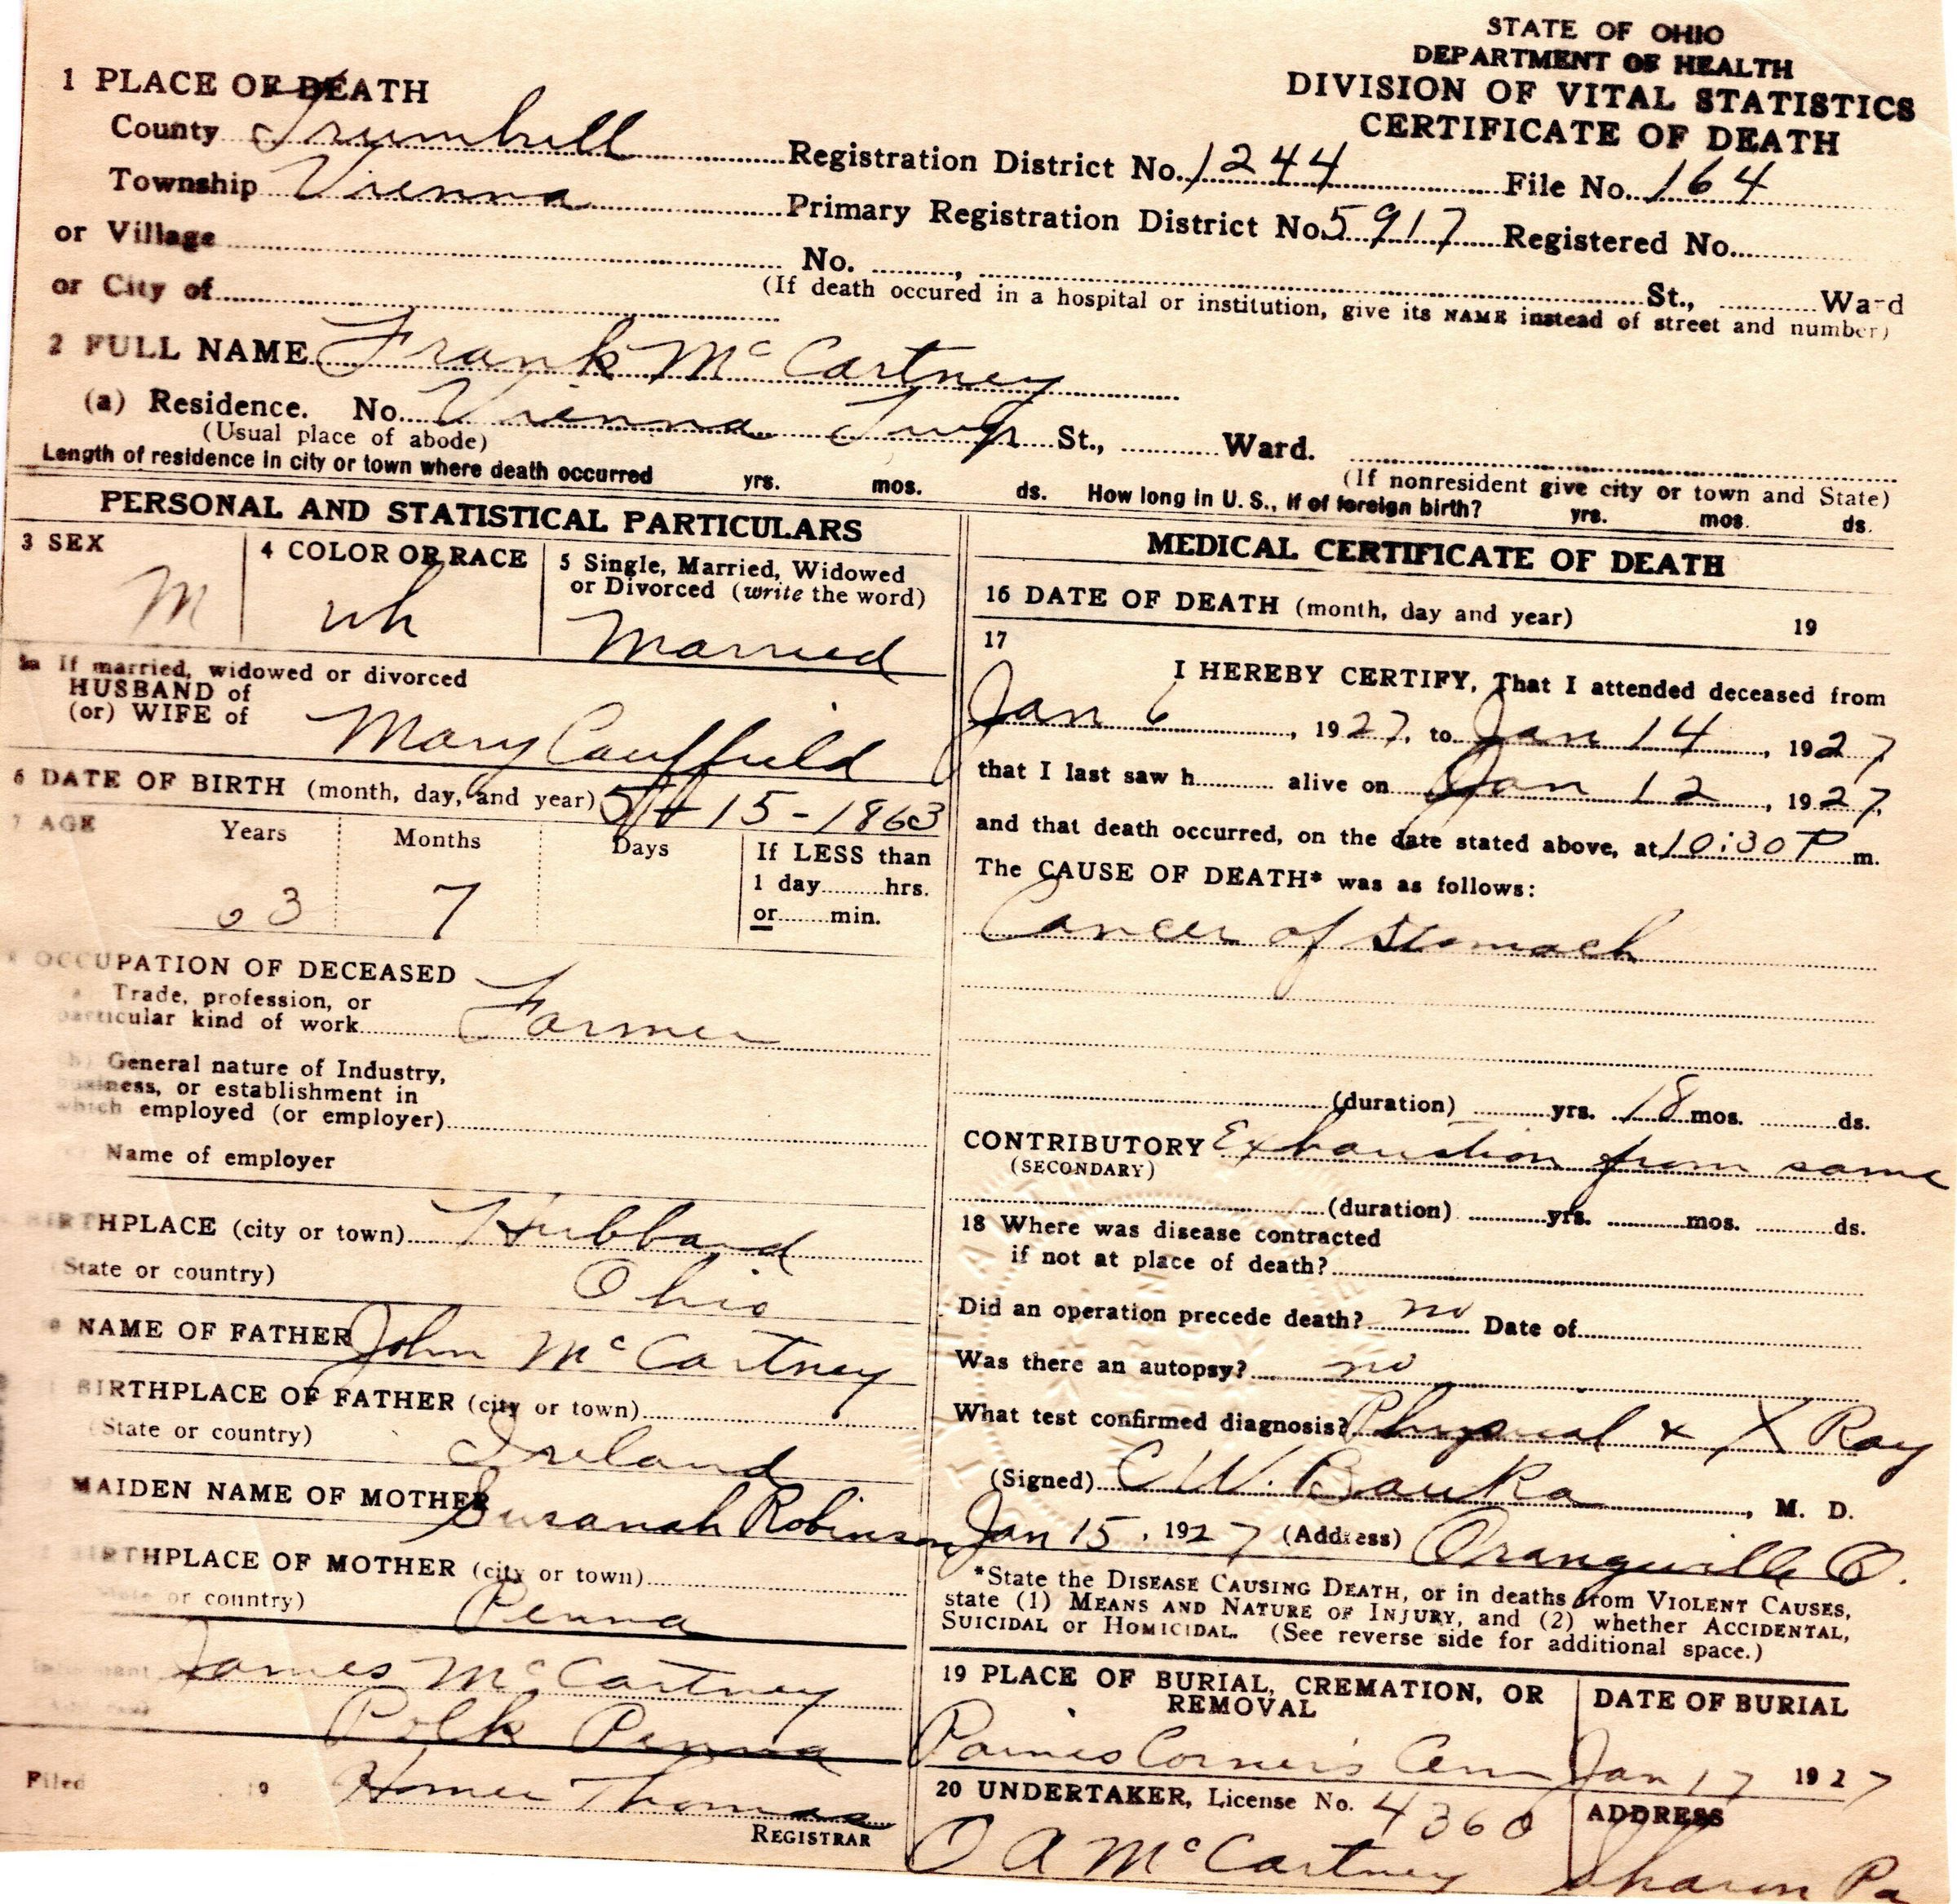 STATE OF OHIO
DEPARTMENT OF HEALTH
DIVISION OF VITAL STATISTICS
CERTIFICATE OF DEATH
1 PLACE OF DEATH
County Trumbull Registration District No. 1244 File No. 164
Township Vienna Primary Registration District No. 5917 Registered No.
or Village No. , St., Ward
or City of (If death occured in a hospital or institution, give its NAME instead of street and number)
2 FULL NAME Frank McCartney
(a) Residence. No. Vienna Twp St., Ward.
(Usual place of abode) (If nonresident give city or town and State)
Length of residence in city or town where death occurred yrs. mos. ds. How long in U. S., if of foreign birth? yrs. mos. ds.
PERSONAL AND STATISTICAL PARTICULARS
3 SEX
M
4 COLOR OR RACE
wh
5 Single, Married, Widowed
or Divorced (write the word)
Married
5a If married, widowed or divorced
HUSBAND of
(or) WIFE of
Mary Cauffield
6 DATE OF BIRTH (month, day, and year) 15 - 1863
7 AGE Years Months Days
63 7
If LESS than
1 day hrs.
or min.
8 OCCUPATION OF DECEASED
Trade, profession, or
particular kind of work Farmer
(b) General nature of Industry,
business, or establishment in
which employed (or employer)
Name of employer
BIRTHPLACE (city or town) Hubbard
(State or country) Ohio
NAME OF FATHER John McCartney
BIRTHPLACE OF FATHER (city or town)
(State or country) Ireland
MAIDEN NAME OF MOTHER Susanah Robinson
BIRTHPLACE OF MOTHER (city or town)
State or country) Penna
Informant James McCartney
Polk Penna
Filed 19 Homer Thomas
REGISTRAR
MEDICAL CERTIFICATE OF DEATH
16 DATE OF DEATH (month, day and year) 19
17
I HEREBY CERTIFY, That I attended deceased from
Jan 6, 1927, to Jan 14, 1927
that I last saw h alive on Jan 12, 1927,
and that death occurred, on the date stated above, at 10:30 P m.
The CAUSE OF DEATH* was as follows:
Cancer of Stomach
(duration) yrs. 18 mos. ds.
CONTRIBUTORY Exhaustion from same
(SECONDARY)
(duration) yrs. mos. ds.
18 Where was disease contracted
if not at place of death?
Did an operation precede death? no Date of
Was there an autopsy? no
What test confirmed diagnosis? Physical & X Ray
(Signed) C W. Bauka, M. D.
Jan 15, 1927 (Address) Orangeville O.
*State the DISEASE CAUSING DEATH, or in deaths from VIOLENT CAUSES,
state (1) MEANS AND NATURE OF INJURY, and (2) whether ACCIDENTAL,
SUICIDAL or HOMICIDAL. (See reverse side for additional space.)
19 PLACE OF BURIAL, CREMATION, OR
REMOVAL
Paines Corners Cem
DATE OF BURIAL
Jan 17 1927
20 UNDERTAKER, License No. 4360
O A McCartney
ADDRESS
Sharon Pa